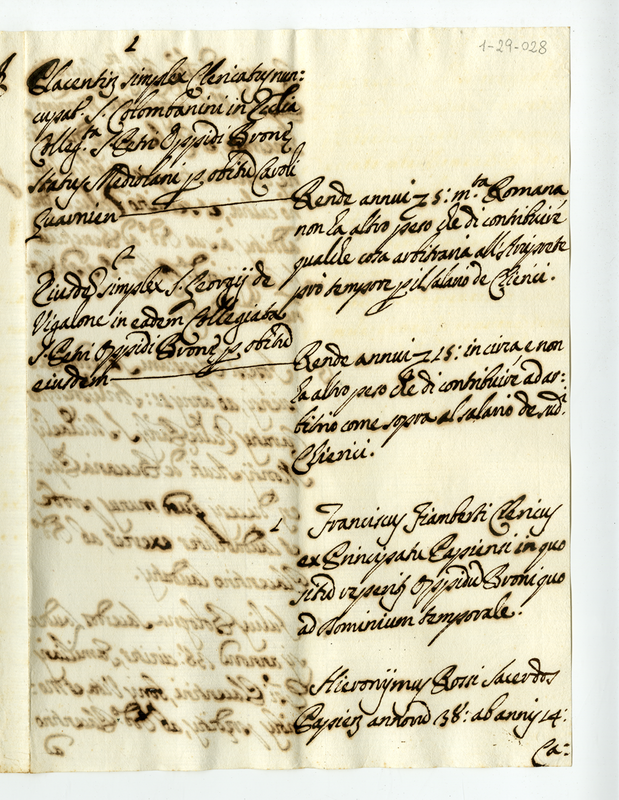 1-29-028
1
Placentiæ simplex Clericatus nun:
cupat. S. Colombanini in Ecclia
Colleg.ta S. Petri Oppidi Bronę
Status Mediolani p obitũ Caroli
Guarnieri
Rende annui 25: m.ta Romana
non ha altro peso che di contribuire
qualche cosa arbitraria all'Arciprete
pro tempore p il salario de Chierici.
Eiusdẽ simplex S. Georgij de
Vigalone in eadem Collegiata
S. Petri Oppidi Bronę p obitũ
eiusdem
Rende annui 15: in circa e non
ha altro peso che di contribuire ad ar:
bitrio come sopra al salario de sud.i
Chierici.
1
Franciscus Fiamberti Clericus
ex Principatu Papiensi in quo
sitũ reperit Oppidũ Broni quo
ad Dominium temporale.
Hieronijmus Rossi Sacerdos
Papien annorũ 38: ab annis 14:
Ca: